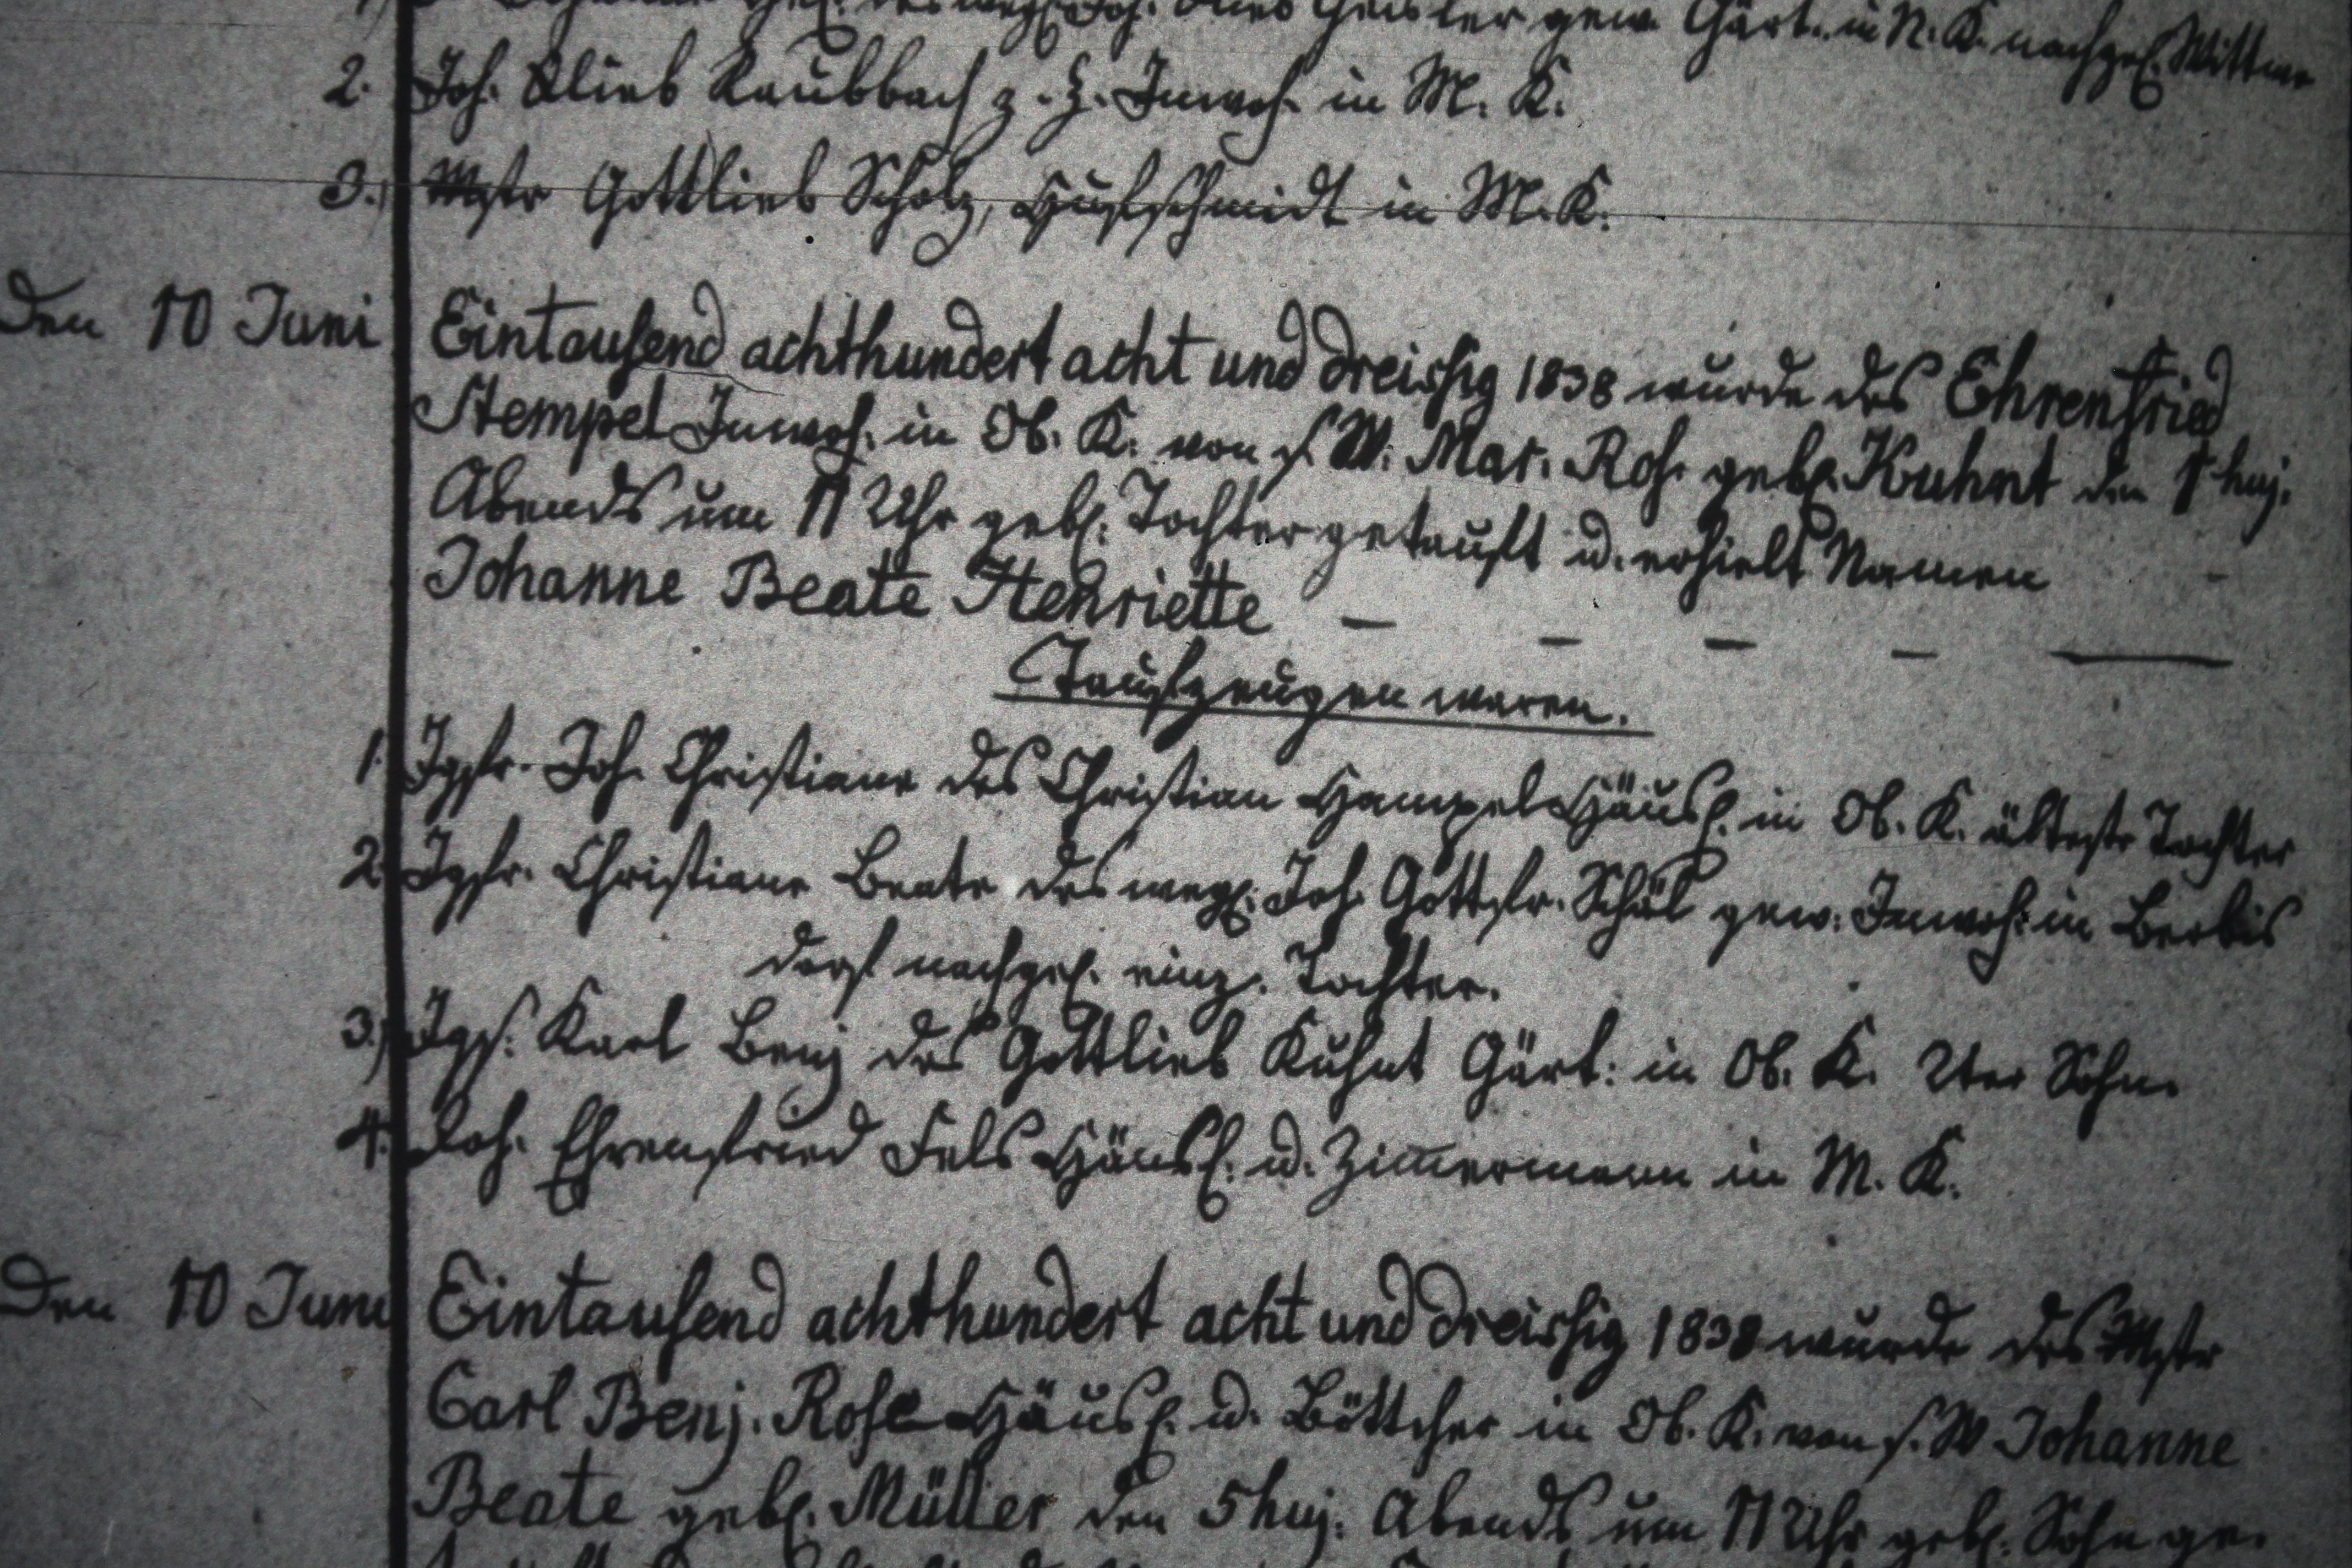 gew. Gärt. in N. K. nachgel. Wittwe
2. Joh. Glieb Raubbach z. Z. Inwoh. in M. K.
3.) Mstr Gottlieb Scholz, Hufschmidt in M. K.
Den 10 Juni Eintausend achthundert acht und dreissig 1838 wurde des Ehrenfried
Stempel Inwoh. in Ob. K. von s. W. Mar. Ros. gebl. Kuhnt den 1 huj.
Abends um 11 Uhr gebl. Tochter getauft u. erhielt Namen
Johanne Beate Henriette — — — — —
Taufzeugen waren.
1. Jgfr. Joh. Christiane des Christian Hampel Häusl. in Ob. K. älteste Tochter
2. Jgfr. Christiane Beate des wegl. Joh. Gottfr. Schäl gew. Inwoh. in Berbis
dorf nachgel. einz. Tochter.
3.) Jgs. Karl Benj des Gottlieb Kuhnt Gärt: in Ob. K. 2ter Sohn.
4. Joh. Ehrenfried Fels Häusl. u. Zimmermann in M. K.
Den 10 Juni Eintausend achthundert acht und dreissig 1838 wurde des Mstr
Carl Benj. Rose Häusl. u. Böttcher in Ob. K. von s. W Johanne
Beate gebl. Müller den 5 huj. Abends um 11 Uhr gebl. Sohn ge-